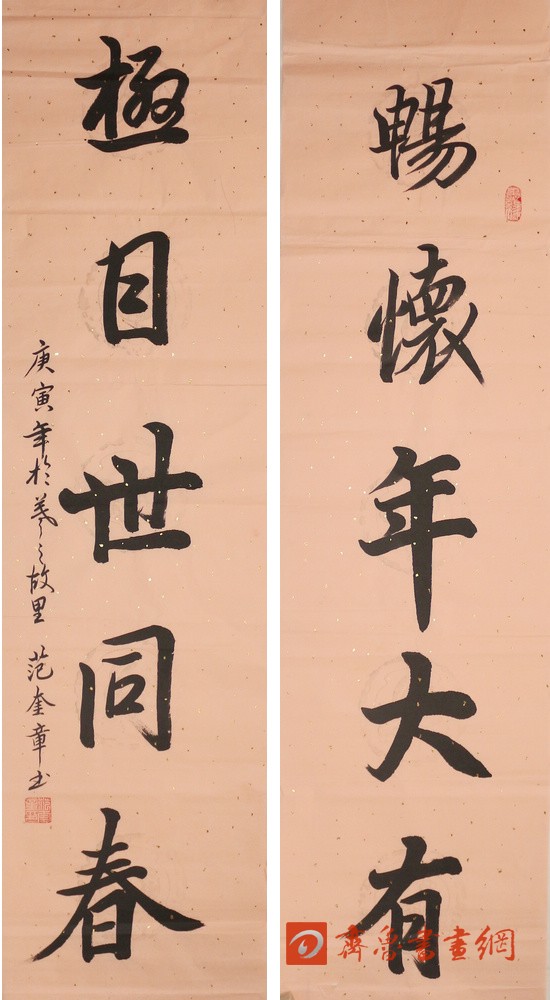 暢懷年大有
極目世同春
庚寅年於羲之故里 范奎章书
齊魯書畫網